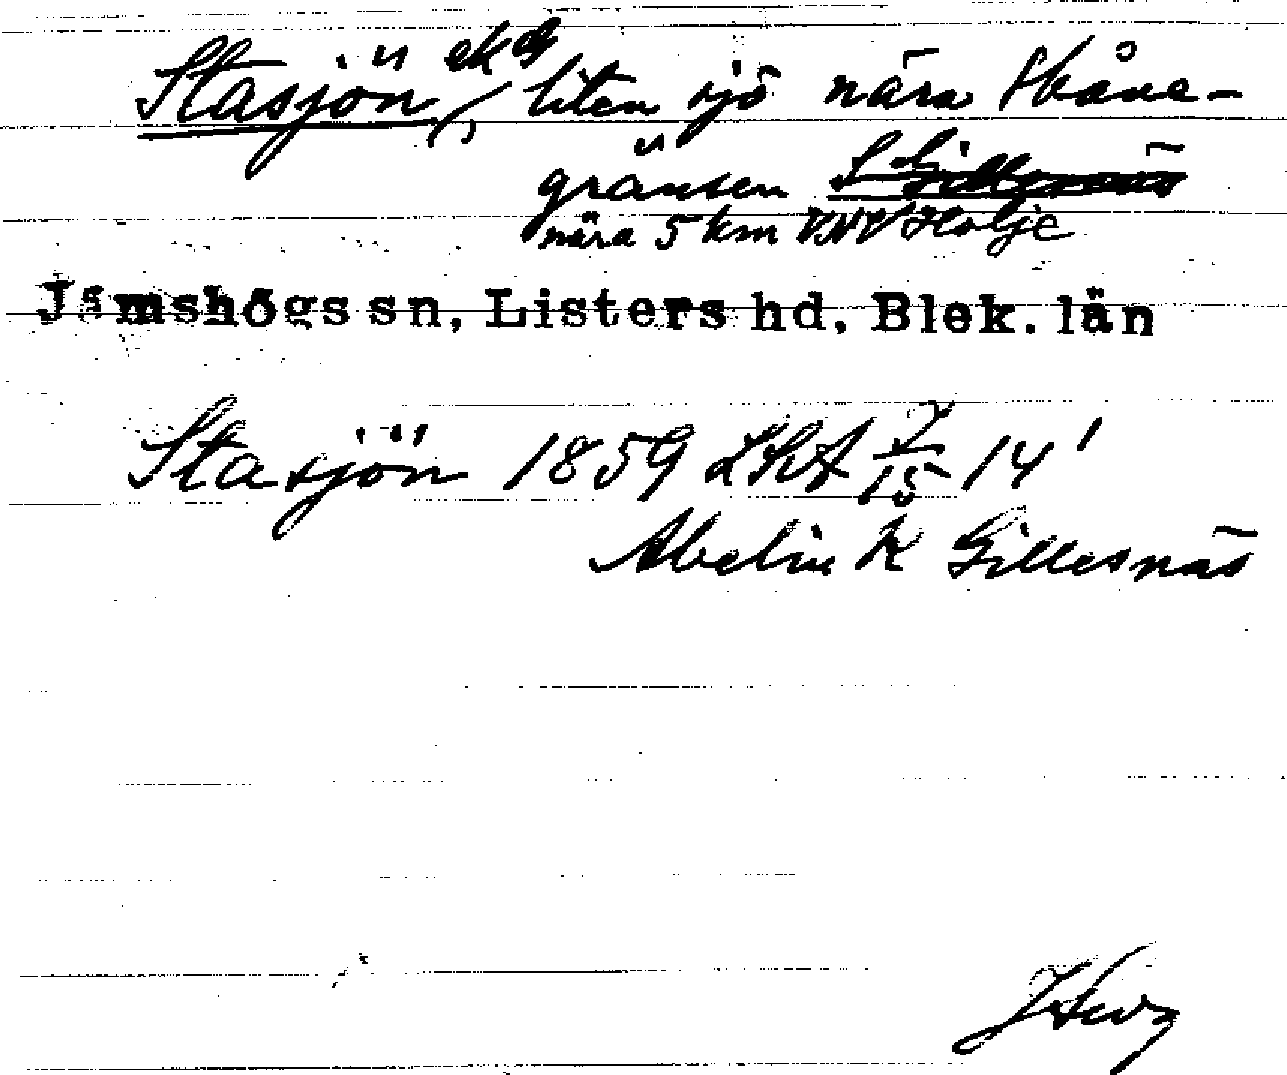 Stasjön ek, liten sjö nära Skåne-
gränsen S Gillesnäs
nära 5 km VNV Holje
Jämshögs sn, Listers hd, Blek. län
Stasjön 1859 LSkA 7/15 14'
Abelin K Gillesnäs